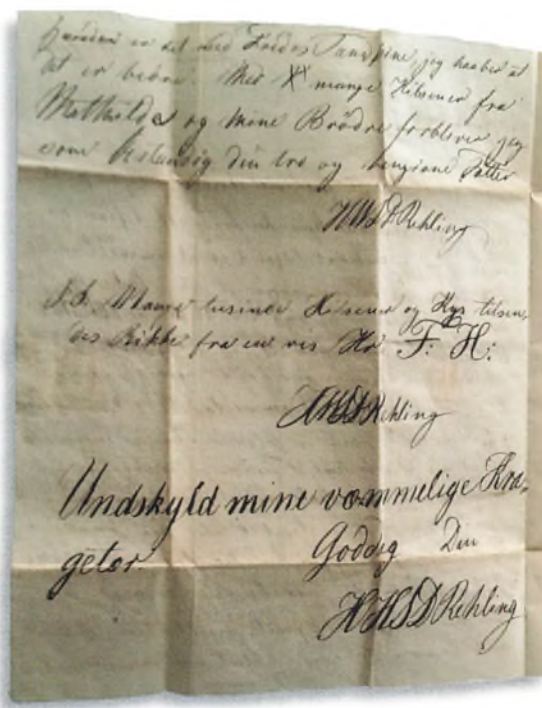 er det med Frides Tandpine, jeg haaber at
det er bedre. Med mange Hilsener fra
Mathilde og mine Brödre forbliver jeg
som bestandig din tro og hengivne Fatter
Rehling
P.S. Mange tusinde Hilsener og Kys tilsen-
des Rikke fra en vis Hr. F: H:
Rehling
Undskyld mine væmmelige Kra-
getær.
Goddag Din
HHSD Rehling